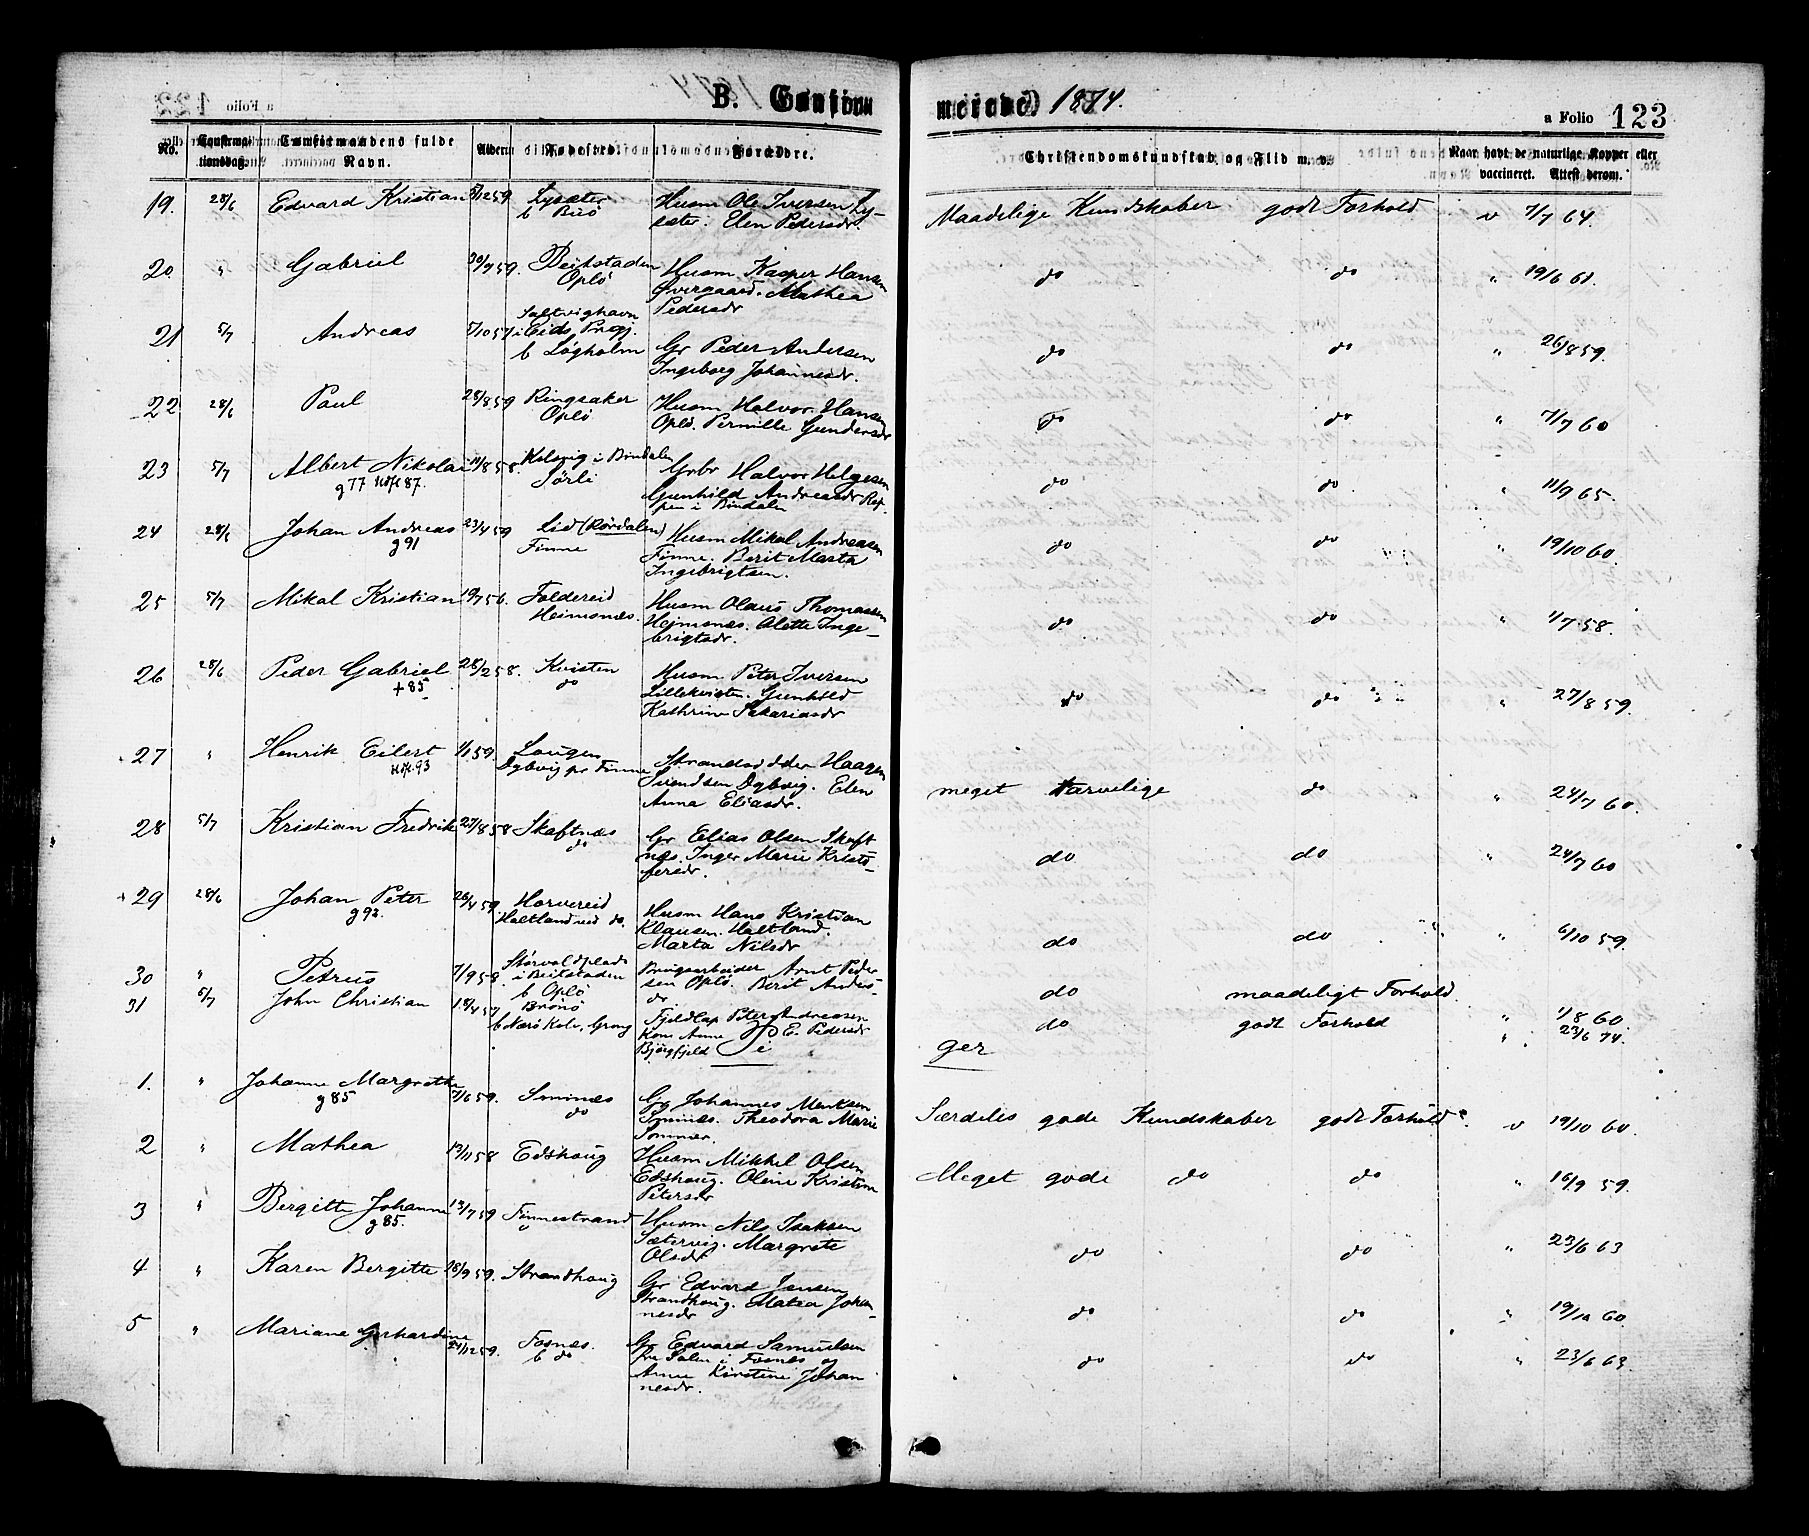 B. Confirmerede. 1874.
a Folio 123
No. Confirmationsdag. Confirmandens fulde Navn. Alder. Fødested. Forældre. Christendomskundskab og Flid m. v. Naar havt de naturlige Kopper eller vaccineret. Attest derom.
19. 28/6 Edvard Kristian 5/12 59 Lysæter Husm Ole Iversen Ly- Maadelige Kundskaber godt Forhold v 7/7 64.
b Biiö sæter. Elen Pedersdr.
20. " Gabriel 30/7 59. Beitstaden Husm Kasper Hansen do do " 19/6 61.
Oplö Övergaard. Mathea
Pedersdr
21 5/7 Andreas 5/10 57 Saltvighavn
i Eids Prgj. Gr Peder Andersen do do " 26/8 59.
b Lögholm Ingeborg Johannesdr.
22 28/6 Paul 28/8 59 Ringsaker Husm Halvor Hansen do do " 7/7 60
Oplö Oplö. Pernille Gundersdr
23 5/7 Albert Nikolai 11/8 58. i Bindalen Grbr Halvor Helgesen do do " 11/9 65.
g 77 Sörli Gunhild Andreasdr
i Bindalen
24 28/6 Johan Andreas 23/4 59 Lid (Rördalen) Husm Mikal Andreasen do do " 19/10 60.
g 91 Finne Finne. Berit Marta
Ingebrigtsen.
25 5/7 Mikal Kristian 19/7 56. Foldereid Husm Olaus Thomassen do do " 1/7 58.
Heimsnæs. Heimsnæs. Olette Inge-
brigtsdr.
26 28/6 Peder Gabriel 28/2 58. Kvisten Husm Peter Iversen do do " 27/8 59.
+ 85 do Lillekvisten. Gunhild
Kathrine Sakariasdr
27 " Henrik Eilert 1/1 59. Laugen Strandsidder Haagen meget tarvelige do " 24/7 60.
93 Dybvig pr Finne Svendsen Dybvig. Elen
Anna Eliasdr.
28 5/7 Kristian Fredrik 27/8 58 Skaftnæs Gr Elias Olsen Skaft do do " 24/7 60
do næs. Inger Marie Kristo-
fersdr.
29 28/6 Johan Peter 26/4 59 Horvereid Husm Hans Kristian do do " 6/10 59.
g 92. Haltlandseid do. Klausen. Haltland.
Marta Nilsdr
30 " Petrus 7/9 58. Störvoldplads Brugsarbeider Arnt Peder do maadeligt Forhold.
i Beitstaden sen Oplö. Berit Anders-
b Oplö dr
31 5/7 John Christian 18/4 57 Brönö Fjeldlap Peter Andreasen do godt Forhold " 1/8 60.
b Nærö Kolv. Grong Kone Anne E. Pedersdr " 23/6 74.
Björgfjeld
Piger
1. " Johanne Margrethe 7/6 59. Smines Gr Johannes Særdeles gode Kundskaber godt Forhold. v 19/10 60.
g 85 do Sminæs. Theodora Marie
Sommer.
2 " Mathea 13/11 58 Edshaug Husm Mikkel Olsen Meget gode do do " 16/9 59.
Edshaug. Oline Kristine
Petersdr
3 " Bergitte Johanne 13/7 59 Finnestrand Husm Nils Isaksen do do " 23/6 63
g 85. Sætervig. Margrete
Olsdr
4 " Karen Bergitte 28/9 59. Strandhaug Gr Edvard Jensen do do " 19/10 60.
Strandhaug. Matea Johan-
nesdr
5 " Mariane Gerhardine 24/12 59. Fosnæs. Gr Edvard Samuelsen do do " 23/6 63.
b do fra Salen i Fosnæs og
Anne Kirstine Johan
nesdr.